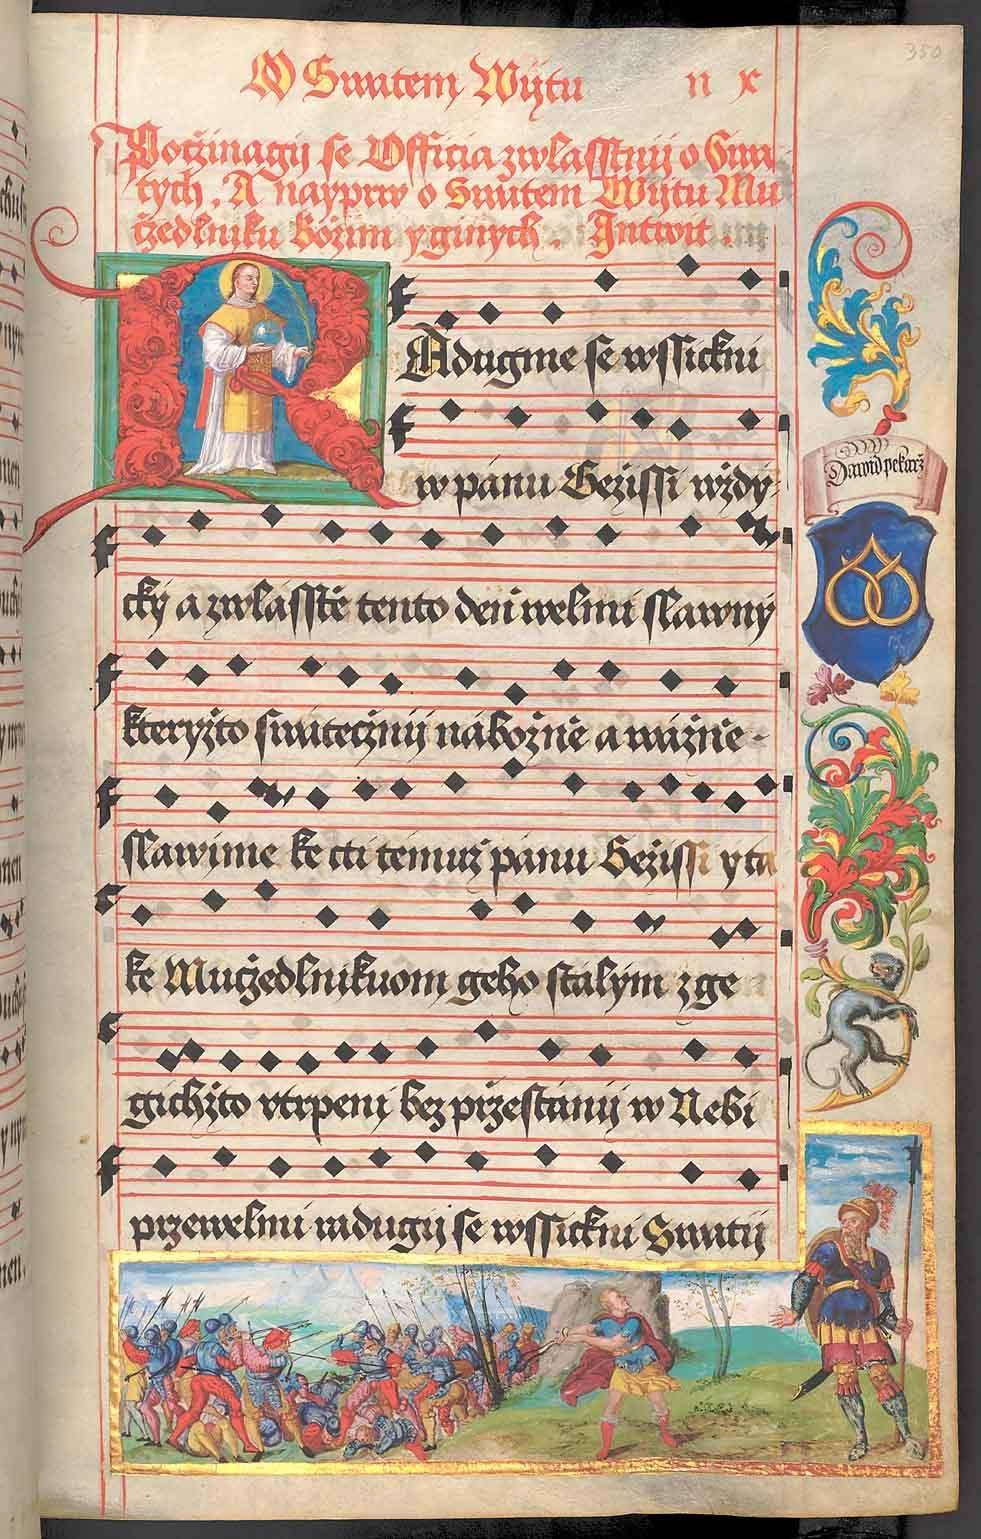 350
O Swatem Wijtu n x
Poczinagij se Officia zwlasstnij o Swa-
tych. A nayprw o Swatem Wijtu Mu
czedlniku Božim y ginych. Introit.
RAdugme se wssickni
w pánu Gežissi wždy-
Dawid pekarž
cky a zwlasstě tento deň welmi slawný
kteryžto swátecžnij nábožně a wážně-
slawime ke cti temuž pánu Gežissi y ta
ke Mucžedlnikuom geho stalým z ge
gichžto vtrpeni bez pržestánij w Nebi
przewelmi radugij se wssickni Swatij